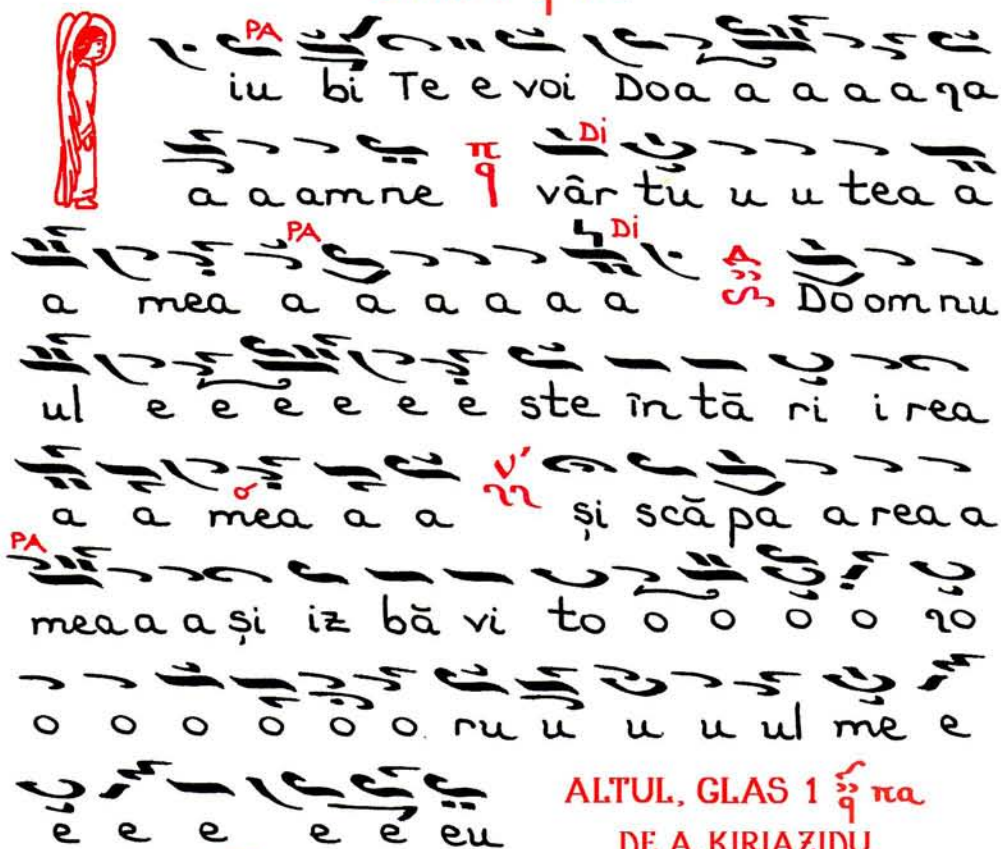 PA
iu bi Te e voi Doa a a a a qa
Di
a a amne π q vâr tu u u u tea a
PA Di
a mea a a a a a a Do om nu
ul e e e e e e ste în tă ri i rea
a a mea a a ν΄ și scă pa a rea a
PA
mea a a și iz bă vi to o o o o qo
o o o o o o ru u u u ul me e
e e e e e eu
ALTUL, GLAS 1 πα
DE A. KIRIAZIDU